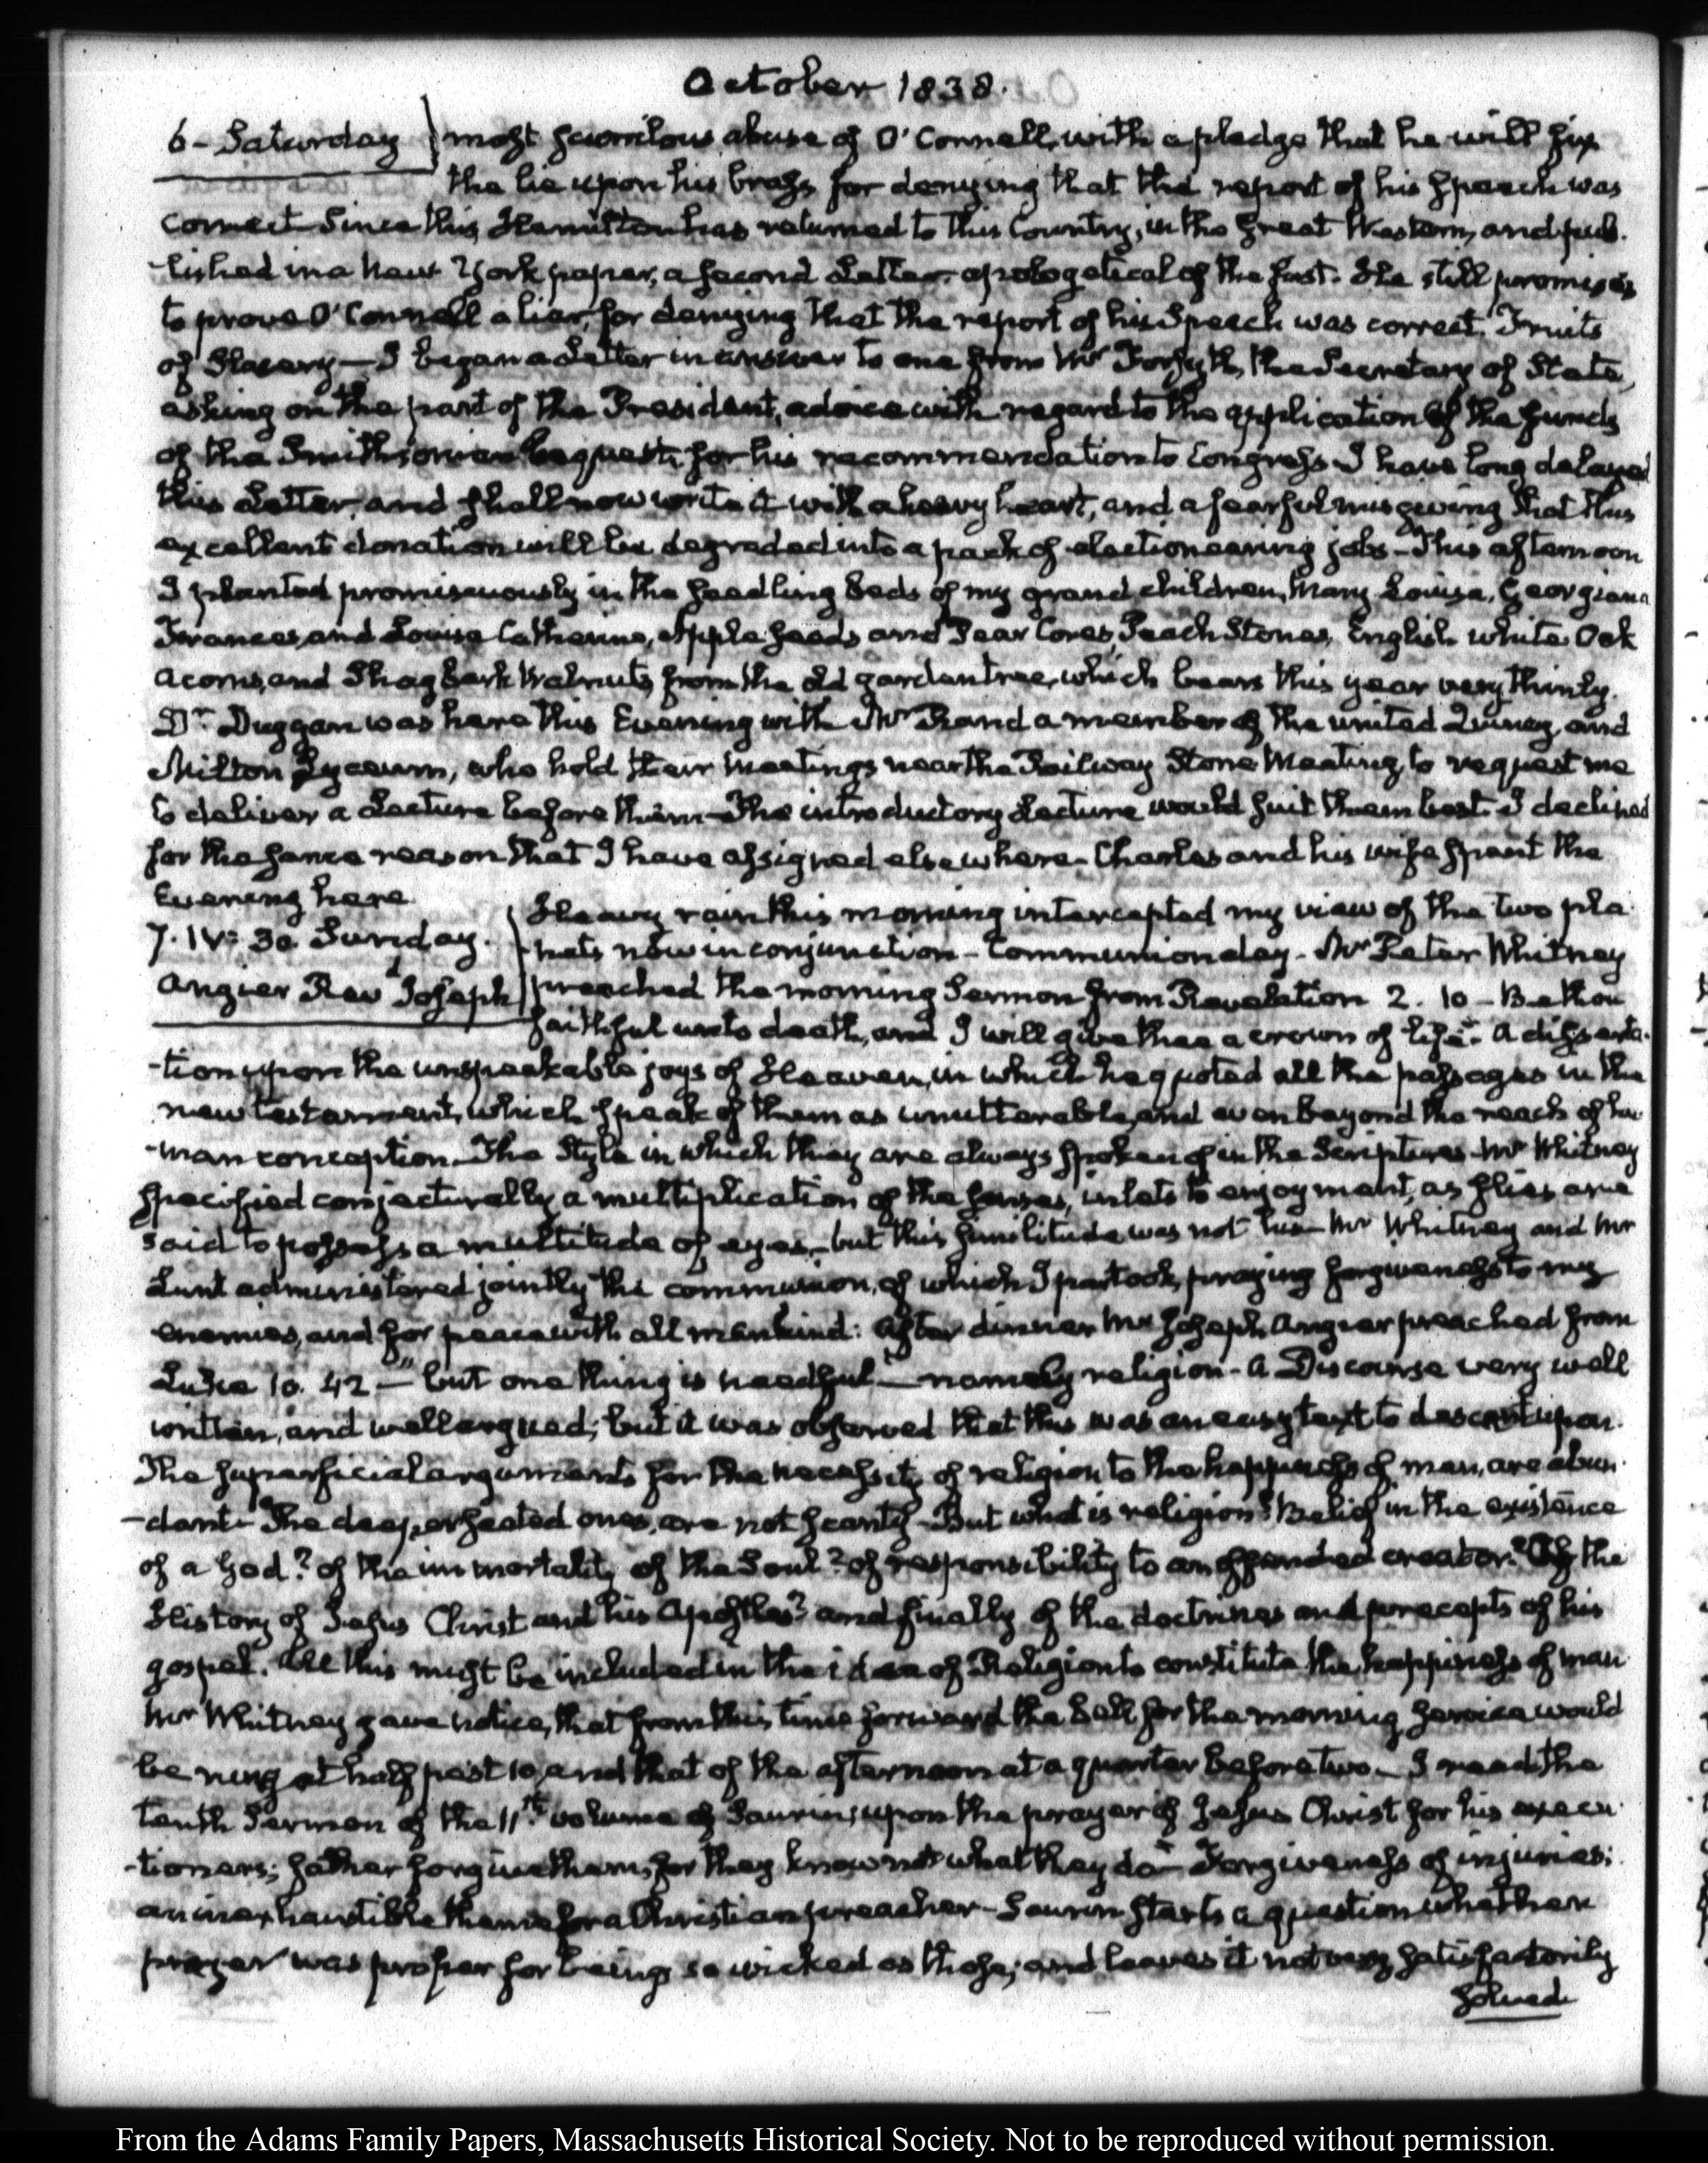 October 1838.
6 - Saturday
most scurrilous abuse of O'Connell, with a pledge that he will fix
the lie upon his brass for denying that the report of his speech was
correct. Since this, Hamilton has returned to this Country, in the Great Western, and pub-
-lished in a New York paper, a second Letter apologetical of the first. He still promises
to prove O'Connell a liar, for denying that the report of his Speech was correct. Fruits
of Slavery — I began a Letter in answer to one from Mr Forsyth, the Secretary of State,
asking on the part of the President, advice with regard to the application of the funds
of the Smithsonian bequest, for his recommendation to Congress. I have long delayed
this Letter, and shall now write it with a heavy heart, and a fearful misgiving that this
excellent donation will be degraded into a pack of electioneering jobs - This afternoon
I planted promiscuously in the seedling beds of my grand children, Mary Louisa, Georgiana
Frances, and Louisa Catherine, Apple seeds and Pear Cores, Peach Stones, English white Oak
acorns, and Shagbark Walnuts from the old garden tree, which bears this year very thinly.
Dr Duggan was here this Evening with Mr Rand a member of the united Quincy, and
Milton Lyceum, who hold their meetings near the Railway Stone Meeting, to request me
to deliver a Lecture before them - The introductory Lecture would suit them best. I declined
for the same reason that I have assigned elsewhere - Charles and his wife spent the
Evening here
7. IV: 30 Sunday.
Angier Revd Joseph
Heavy rain this morning intercepted my view of the two pla-
-nets now in conjunction - Communion day - Mr Peter Whitney
preached the morning Sermon from Revelation 2. 10 - Be thou
faithful unto death, and I will give thee a crown of life - A disserta-
-tion upon the unspeakable joys of Heaven, in which he quoted all the passages in the
new testament, which speak of them as unutterable, and even beyond the reach of hu-
-man conception - The Style in which they are always spoken of in the Scriptures - Mr Whitney
specified conjecturally a multiplication of the senses, inlets to enjoyment, as flies are
said to possess a multitude of eyes - but this similitude was not his - Mr Whitney and Mr
Lunt administered jointly the communion, of which I partook, praying forgiveness to my
enemies, and for peace with all mankind: After dinner Mr Joseph Angier preached from
Luke 10. 42 - "but one thing is needful" - namely religion - A Discourse very well
written, and well argued; but it was observed that this was an easy text to descant upon.
The superficial arguments for the necessity of religion to the happiness of man, are abun-
-dant - The deep, seated ones, are not scanty - But what is religion? Belief in the existence
of a God? of the immortality of the Soul? of responsibility to an offended creator? Of the
History of Jesus Christ and his Apostles? and finally of the doctrines and precepts of his
gospel. All this must be included in the idea of Religion to constitute the happiness of man
Mr Whitney gave notice, that from this time forward the bell for the morning service would
be rung at half past 10, and that of the afternoon at a quarter before two - I read the
tenth Sermon of the 11th volume of Saurin, upon the prayer of Jesus Christ for his execu-
-tioners; father forgive them, for they know not what they do - Forgiveness of injuries;
an inexhaustible theme for a Christian preacher - Saurin starts a question whether
prayer was proper for beings so wicked as those; and leaves it not very satisfactorily
solved.
From the Adams Family Papers, Massachusetts Historical Society. Not to be reproduced without permission.